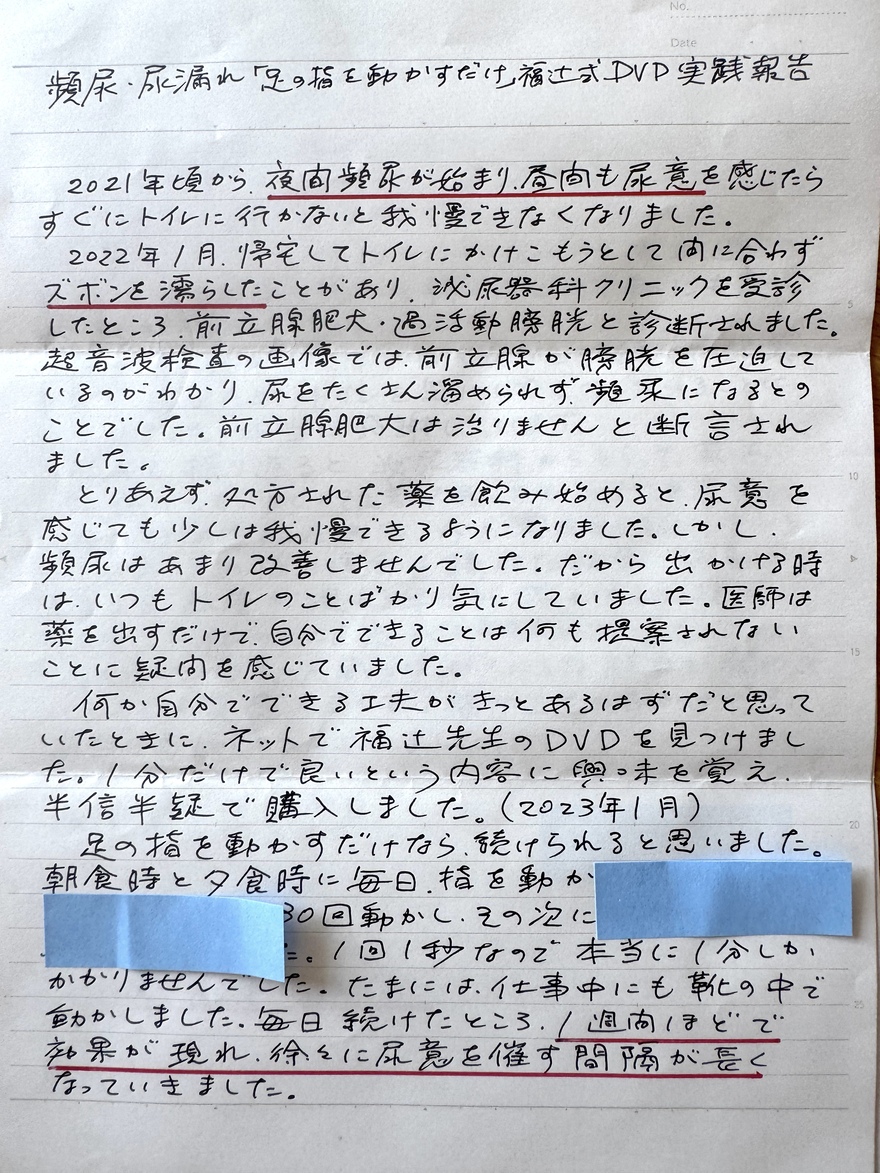 No.
Date
頻尿・尿漏れ「足の指を動かすだけ」福辻式DVD実践報告
2021年頃から、夜間頻尿が始まり、昼間も尿意を感じたら
すぐにトイレに行かないと我慢できなくなりました。
2022年1月、帰宅してトイレにかけこもうとして間に合わず
ズボンを濡らしたことがあり、泌尿器科クリニックを受診
したところ、前立腺肥大・過活動膀胱と診断されました。
超音波検査の画像では、前立腺が膀胱を圧迫して
いるのがわかり、尿をたくさん溜められず、頻尿になるとの
ことでした。前立腺肥大は治りませんと断言され
ました。
とりあえず、処方された薬を飲み始めると、尿意を
感じても少しは我慢できるようになりました。しかし、
頻尿はあまり改善しませんでした。だから出かける時
は、いつもトイレのことばかり気にしていました。医師は
薬を出すだけで、自分でできることは何も提案されない
ことに疑問を感じていました。
何か自分でできる工夫がきっとあるはずだと思って
いたときに、ネットで福辻先生のDVDを見つけまし
た。1分だけで良いという内容に興味を覚え、
半信半疑で購入しました。(2023年1月)
足の指を動かすだけなら、続けられると思いました。
朝食時と夕食時に毎日、指を動か
30回動かし、その次に
た。1回1秒なので本当に1分しか
かかりませんでした。たまには、仕事中にも靴の中で
動かしました。毎日続けたところ、1週間ほどで
効果が現れ、徐々に尿意を催す間隔が長く
なっていきました。
5
10
15
20
25